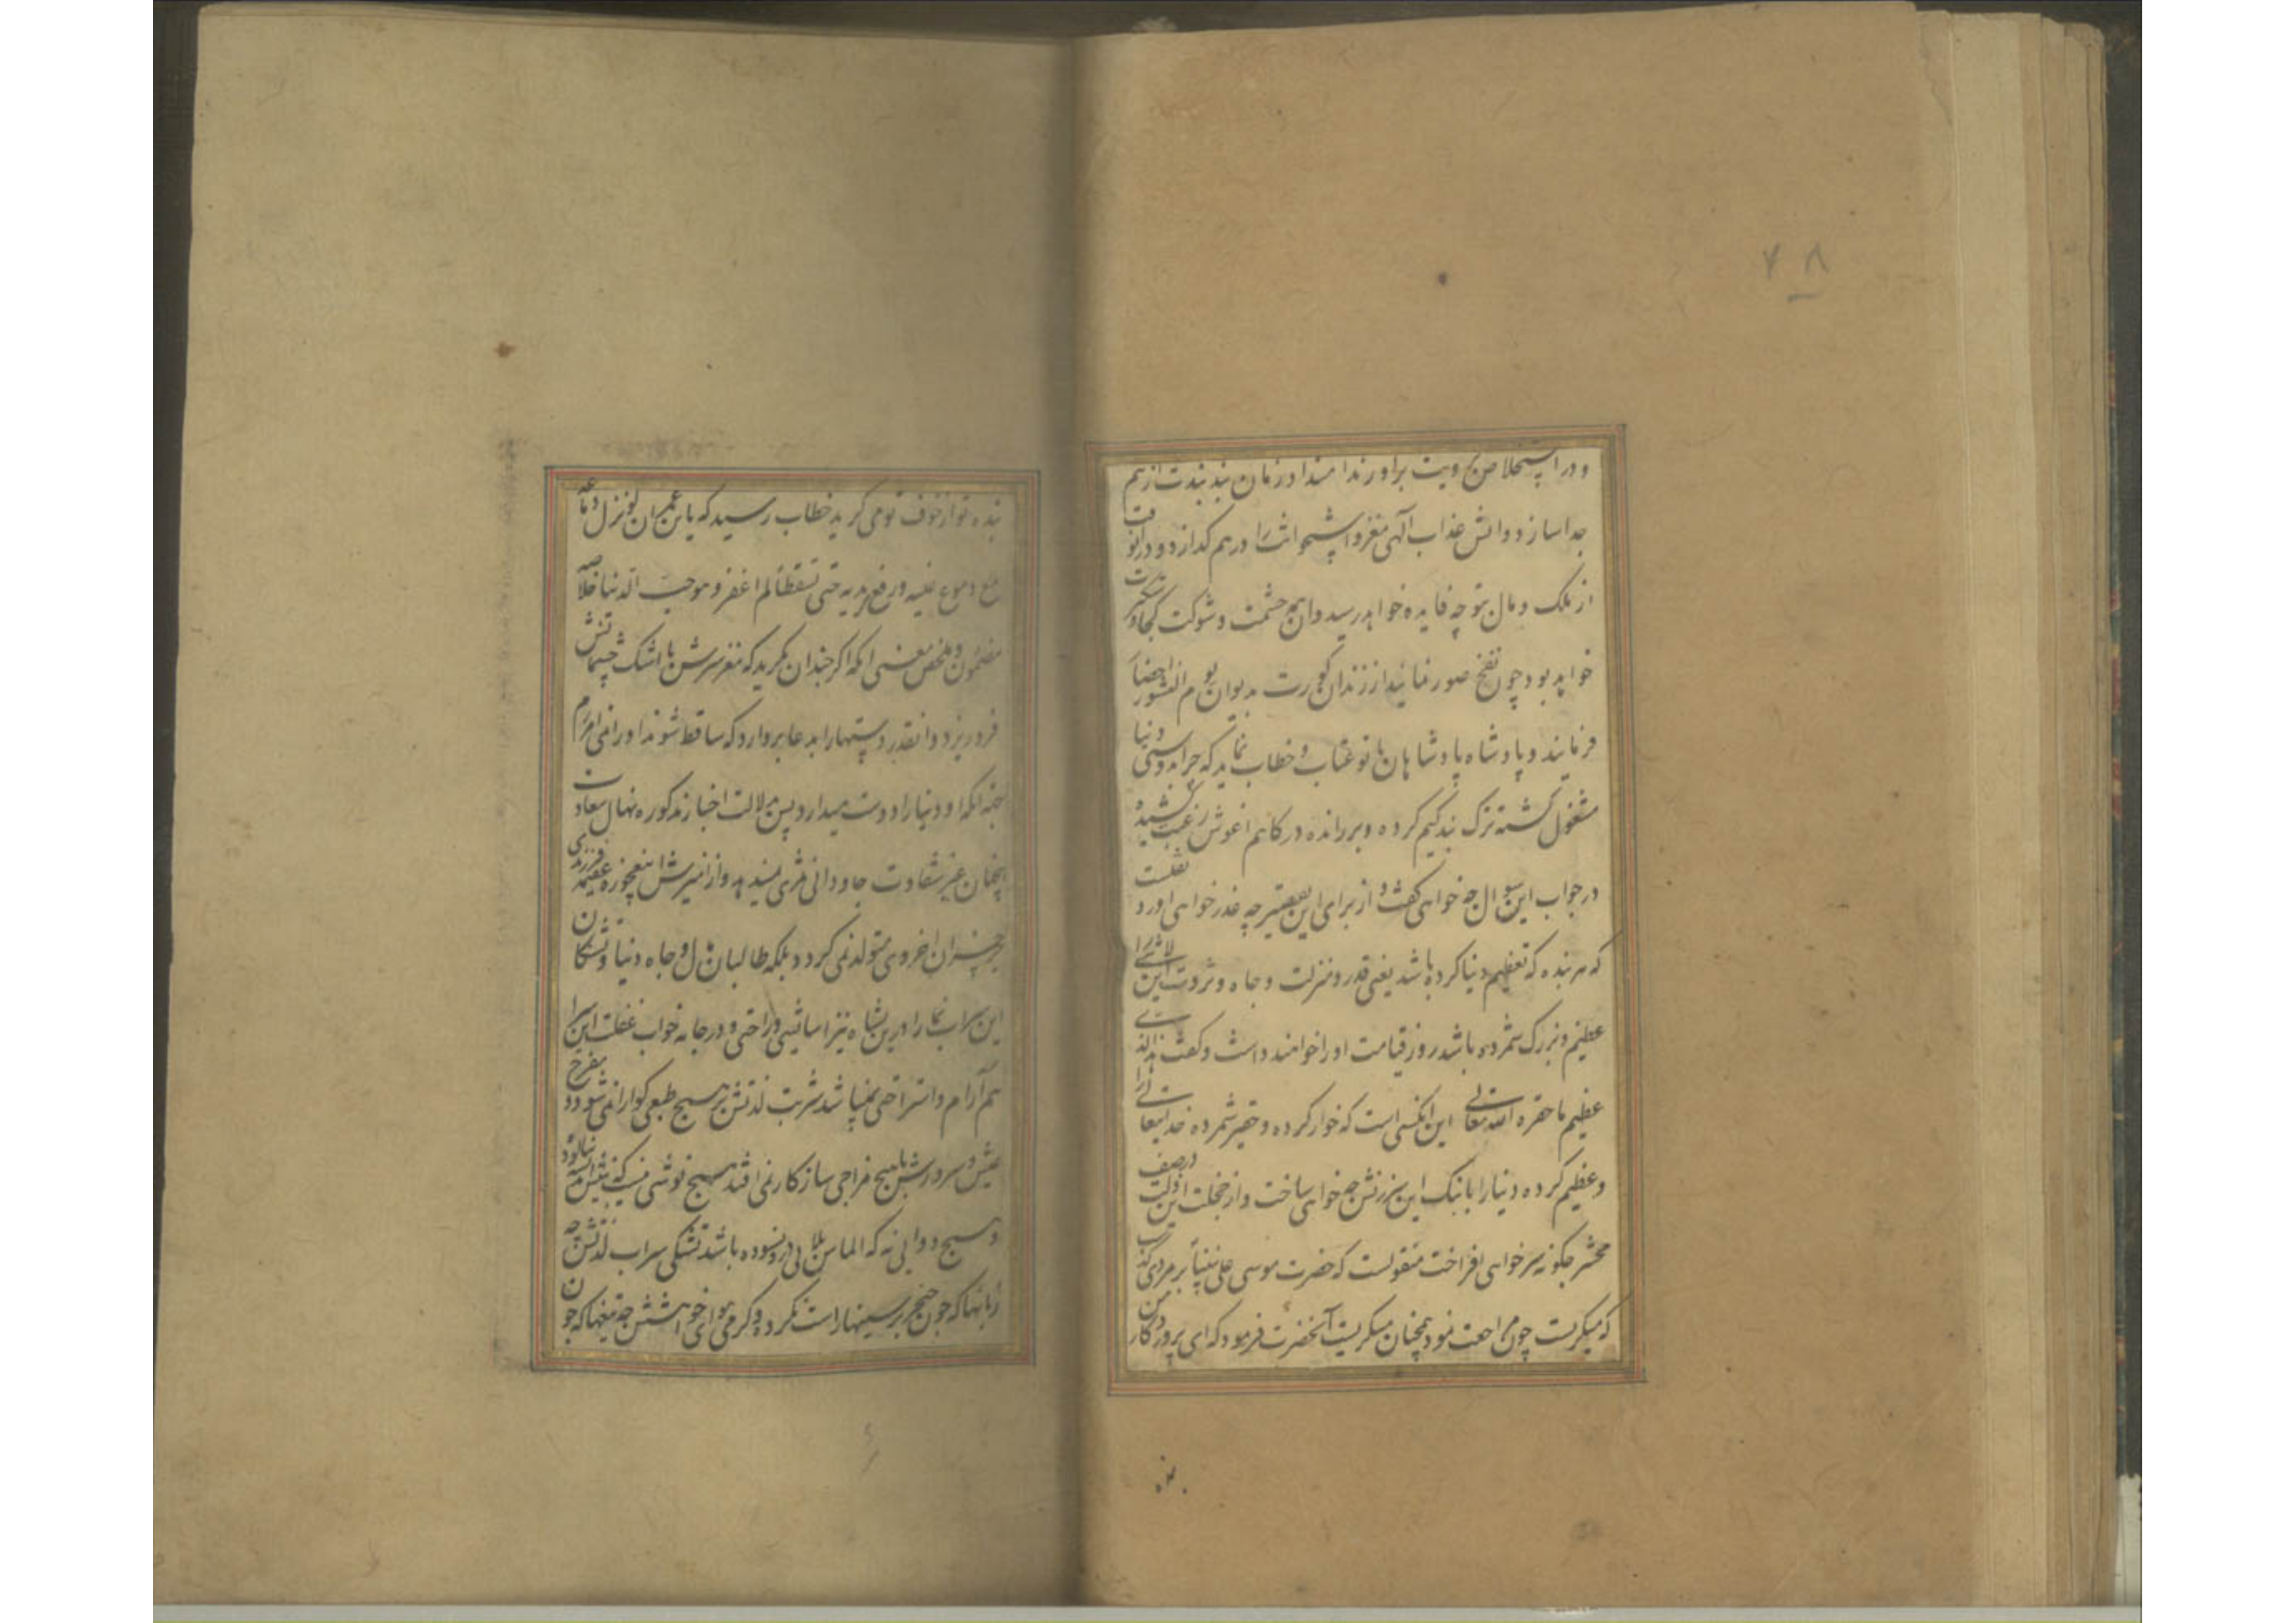 ۴۸
جدا سازد و اتش عذاب الهی مغز و استخوانت را در هم کدازد و در انوقت
از ملک و مال تو چه فایده خواهد رسید و ان حشمت و شوکت کجا دستکیرت
خواهد بود چون نفخ صور نمایند از زندان کورت بدیوان یوم النشور احضار
فرمایند و پادشاه پادشاهان با تو عتاب و خطاب نماید که چرا بدوستی دنیا
مشغول کشته ترک بندکیم کرده و بر رانده درکاهم اغوش رغبت کشیده
در جواب این سوال چه خواهی کفت و از برای این تقصیر چه عذر خواهی اورد نقلست
که هر بنده که تعظیم دنیا کرده باشد یعنی قدر و منزلت و جاه و ثروت این لاشی را
عظیم و بزرک شمرده باشد روز قیامت او را خوانند داشت و کفت هذا الذی
عظیم ما حقره الله تعالی این انکسی است که خوار کرده و حقیر شمرده خدایتعالی انرا
و عظیم کرده دنیا را با ننک این سرزنش چه خواهی ساخت و از خجلت این ذلت در صف
محشر چکونه سر خواهی افراخت منقولست که حضرت موسی علی نبینا بر مردی کذشت
که میکریست چون مراجعت نمود همچنان میکریست آنحضرت فرمود که ای پروردکار من
بنده
بنده تو از خوف تو می کرید خطاب رسید که یابن عمران لو نزل دماغه
مع دموع عینیه و رفع یدیه حتی تسقطا لم اغفر و هو یحب الدنیا خلاصه
مضمون و ملخص معنی انکه اکر چندان بکرید که مغز سرش با اشک چشمانش
فرو ریزد و انقدر دستها را بدعا بر دارد که ساقط شوند او را نمی امرزم
بجهة انکه او دنیا را دوست میدارد پس بدلالت اخبار مذکوره نهال سعادت
انچنان غیر شقاوت جاودانی ثمری نمیدهد و از امیزش این عجوزه عقیمه فرزندی
بجز خسران اخروی متولد نمی کردد بلکه طالبان مال و جاه دنیا و تشنکان
این سراب نما را درین نشاه نیز اسایشی و راحتی و در جامه خواب غفلت این سرا
هم آرام و استراحتی نمیباشد شربت لذتش بر هیچ طبعی کوارا نمی شود و مفرح
عیش و سرورش با هیچ مزاجی سازکار نمی افتد هیچ نوشی نیست که به نیش نیالوده
و هیچ دوایی نه که الماس بلا بی در او نسوده باشد تشنکی سراب لذتش چه
زبانها که چون خنجر بر سینها راست نکرد و کرمی هوای خواهشش چه تیغها که چون